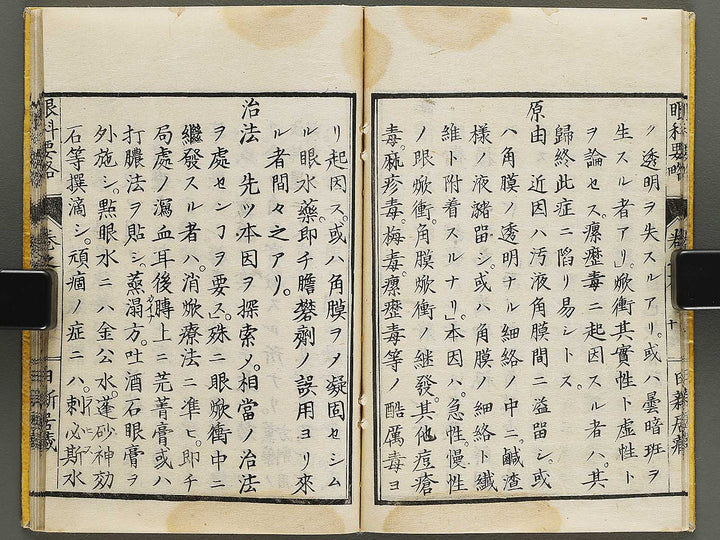 ク透明ヲ失スルアリ。或ハ曇暗班ヲ
生スル者アリ」焮衝其實性ト虚性ト
ヲ論セス。瘰癧毒ニ起因スル者ハ。其
歸終此症ニ陷リ易シトス。
原由 近因ハ汚液角膜間ニ溢留シ。或
ハ角膜ノ透明ナル細絡ノ中ニ。鹹渣
様ノ液瀦留シ。或ハ角膜ノ細絡ト纎
維ト附着スルナリ」本因ハ。急性。慢性
ノ眼焮衝。角膜焮衝ノ継發。其他痘瘡
毒。麻疹毒。梅毒。瘰癧毒等ノ酷厲毒ヨ
眼科要略
リ起因ス。或ハ角膜ヲメ凝固セシム
ル眼水藥。即チ膽礬劑ノ誤用ヨリ來
ル者間々之アリ。
治法 先ツ本因ヲ探索メ。相當ノ治法
ヲ處センコヲ要ス。殊ニ眼焮衝中ニ
繼發スル者ハ。消焮療法ニ準ヒ。即チ
局處ノ瀉血耳後膊上ニ芫菁膏或ハ
打膿法ヲ貼シ。蒸溻方。吐酒石眼膏ヲ
外施シ。點眼水ニハ金公水。蓬砂神効
石等撰滴シ。頑痼ノ症ニハ。刺必斯水
眼科要略
日新居藏